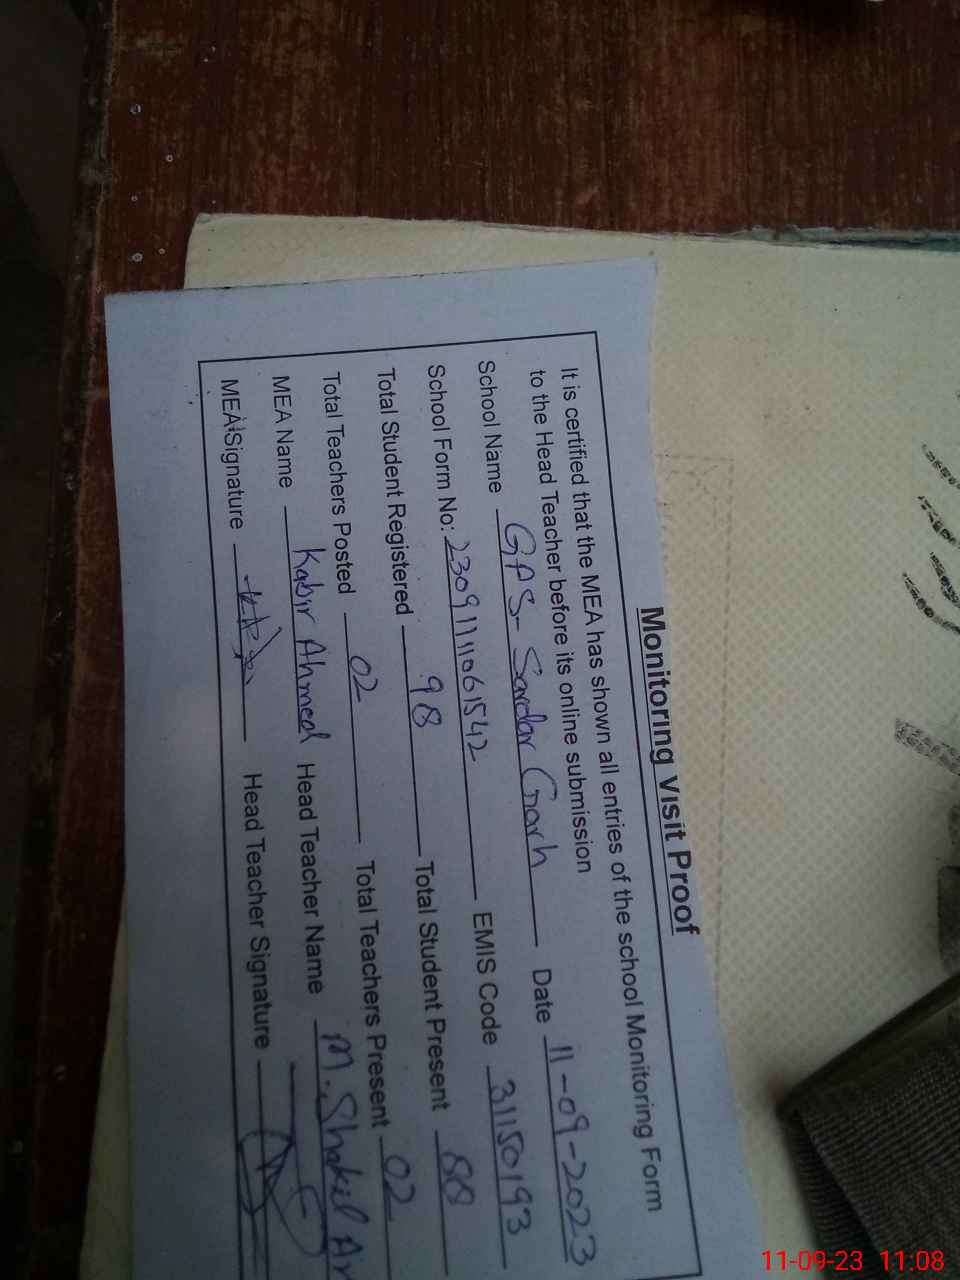 Monitoring Visit Proof
It is certified that the MEA has shown all entries of the school Monitoring Form
to the Head Teacher before its online submission
School Name GPS- Sardar Garh Date 11-09-2023
School Form No: 2309111061542 EMIS Code 31150193
Total Student Registered 98 Total Student Present 88
Total Teachers Posted 02 Total Teachers Present 02
MEA Name Kabir Ahmed Head Teacher Name M. Shakil
MEA Signature Head Teacher Signature
11-09-23 11:08